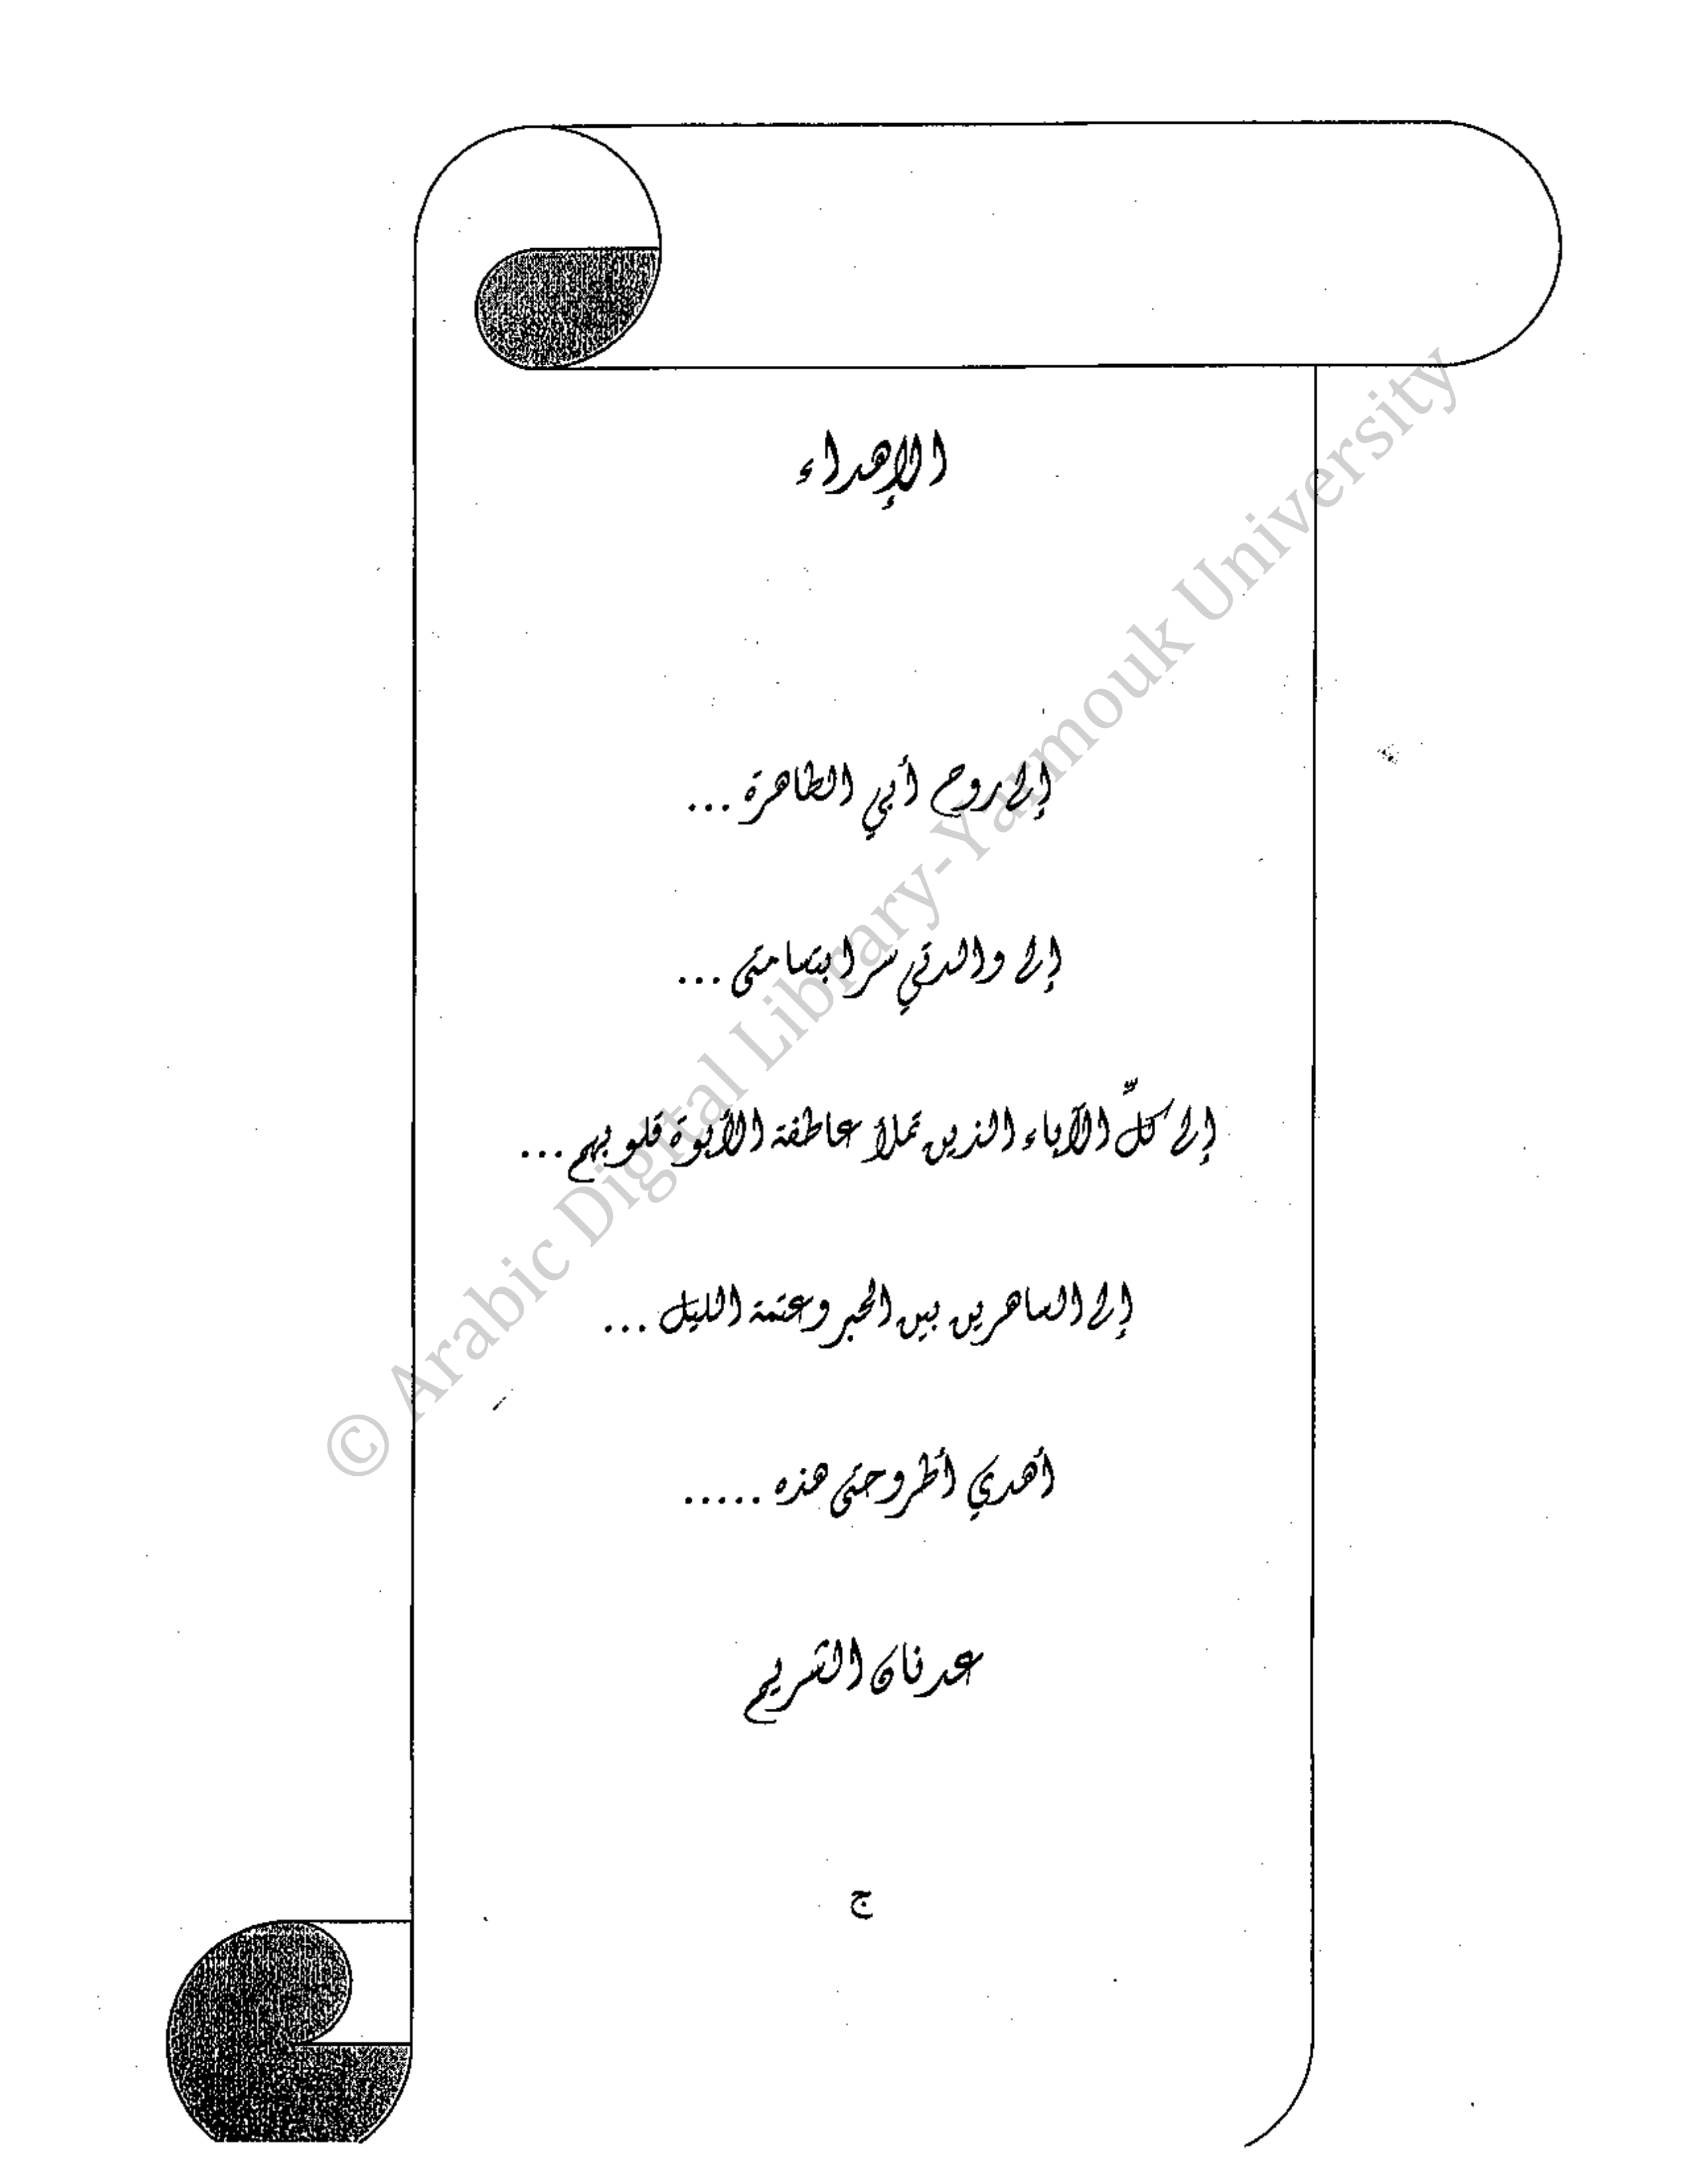 الإهداء
إلى روح أبي الطاهرة ...
إلى والدتي سر ابتسامتي ...
إلى كلّ الآباء الذين تملأ عاطفة الأبوة قلوبهم ...
إلى الساهرين بين الحبر وعتمة الليل ...
أهدي أطروحتي هذه .....
عدنان الشريم
ج
© Arabic Digital Library-Yarmouk University